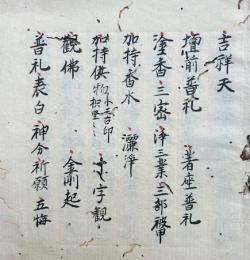 吉祥天
壇前普礼 著座普礼
塗香 三密 浄三業 三部 被甲
加持香水 灑浄
加持供物 小三古印 字観
觀佛 金剛起
普礼 表白 神分 祈願 五悔